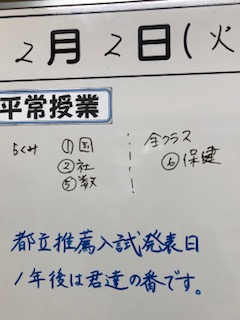 2月2日(火
平常授業
5くみ ①国 全クラス
②社 ⑥保健
⑤数
都立推薦入試発表日
1年後は君達の番です。